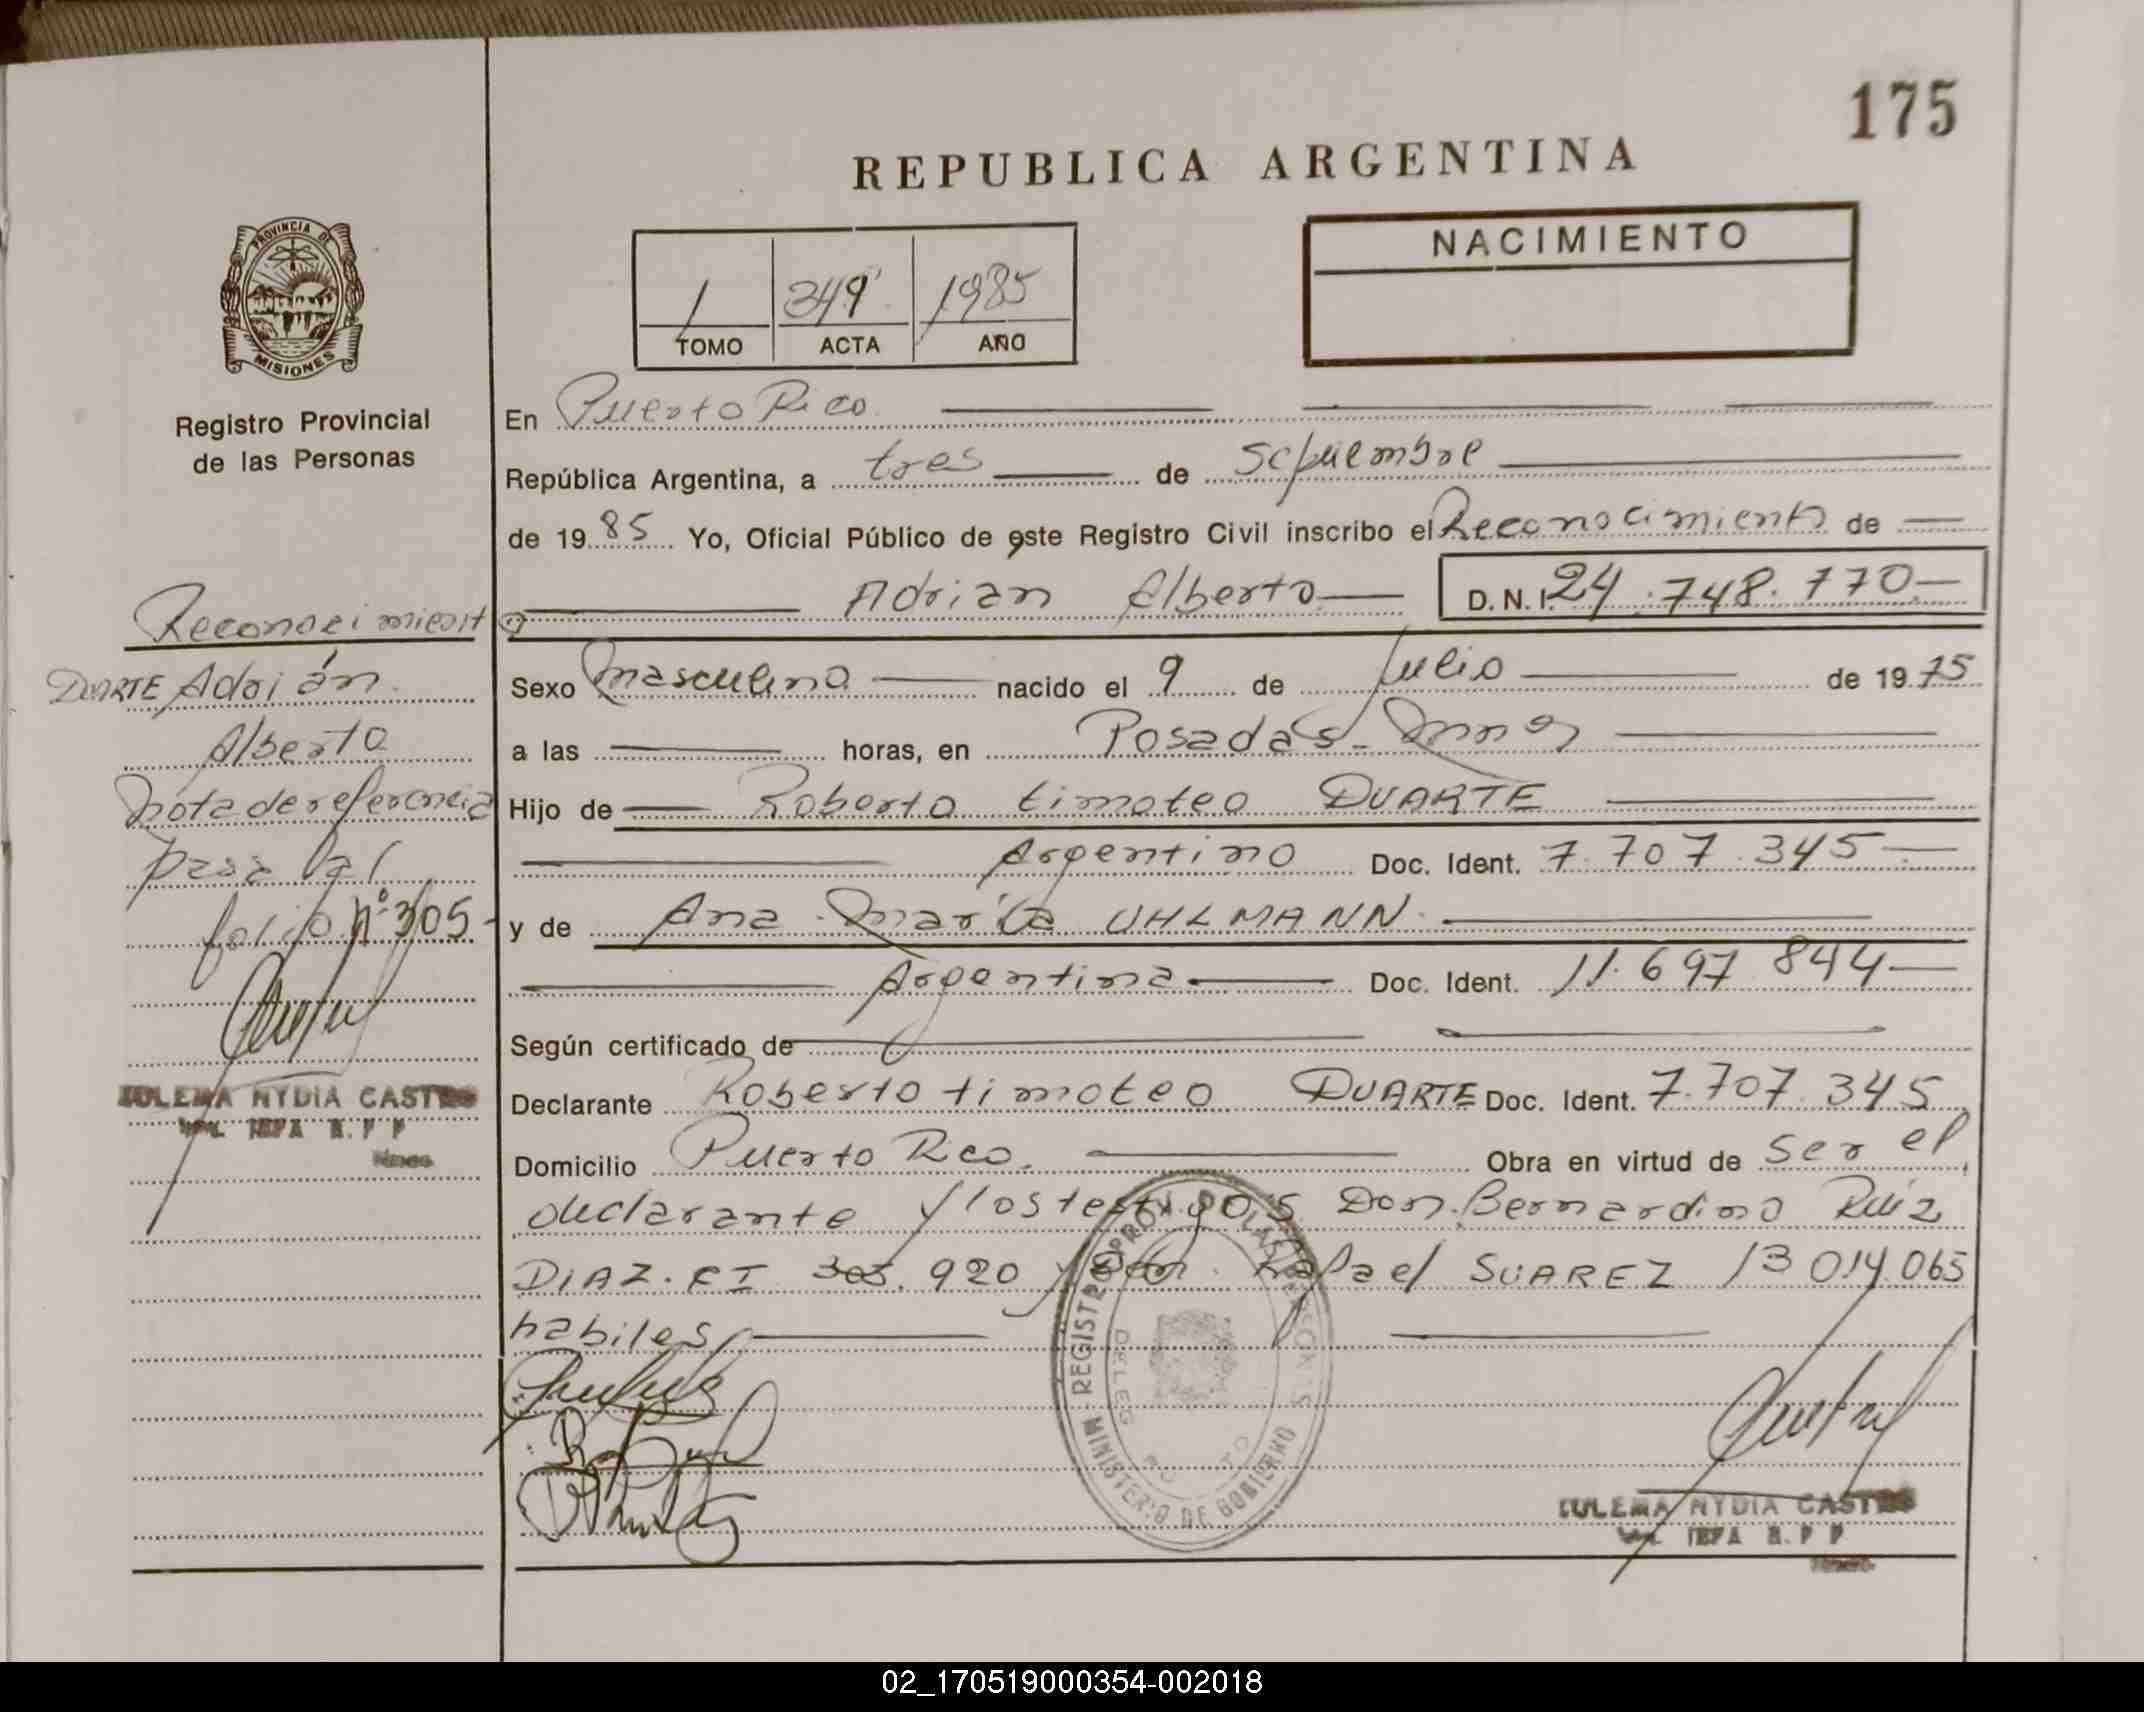 175
REPUBLICA ARGENTINA
NACIMIENTO
1 349 1985
TOMO ACTA AÑO
PROVINCIA DE
MISIONES
Registro Provincial
de las Personas
Reconocimiento
DUARTE Adrián
Alberto
Nota de referencia
pasa al
folio nº 305
ZULEMA NYDIA CASTRO
JEFA R.P.P
En Puerto Rico
República Argentina, a tres de Septiembre
de 1985 Yo, Oficial Público de este Registro Civil inscribo el Reconocimiento de
Adrian Alberto D.N.I. 24.748.770
Sexo masculino nacido el 9 de Julio de 1975
a las horas, en Posadas - Mnes
Hijo de Roberto timoteo DUARTE
Argentino Doc. Ident. 7.707.345
y de Ana María UHLMANN
Argentina Doc. Ident. 11.697.844
Según certificado de
Declarante Roberto timoteo DUARTE Doc. Ident. 7.707.345
Domicilio Puerto Rico. Obra en virtud de ser el
declarante y los testigos Don Bernardino Ruiz
DIAZ. 920 y Don Rafael SUAREZ 13.014.065
habiles
REGISTRO PROV. DE LAS PERSONAS
MINISTERIO DE GOBIERNO
DELEG
ZULEMA NYDIA CASTRO
JEFA R.P.P
02_170519000354-002018